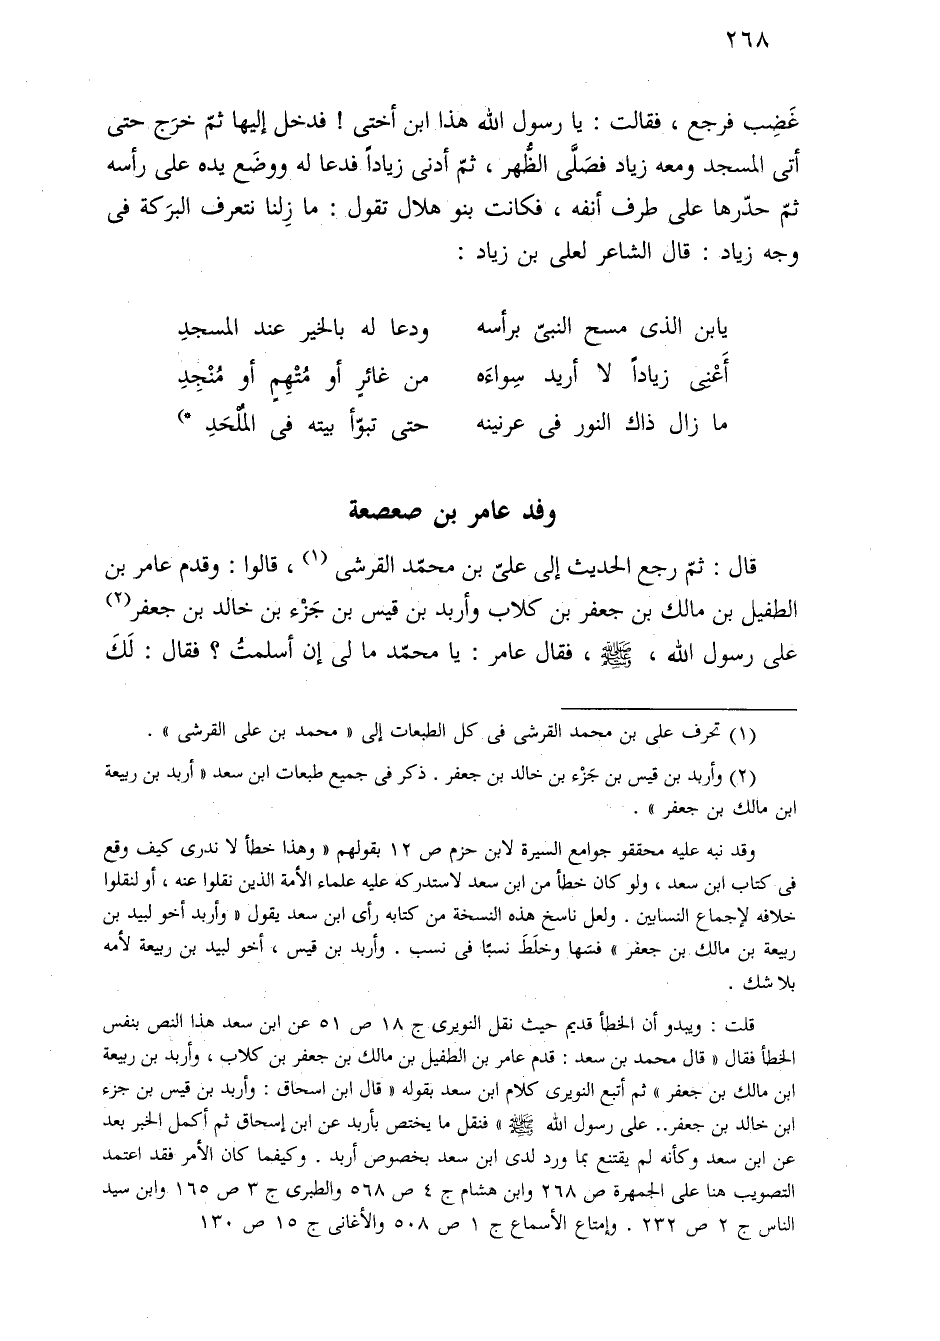 ٢٦٨
غَضِب فرجع ، فقالت : يا رسول الله هذا ابن أختى ! فدخل إليها ثمّ خرَج حتى
أتى المسجد ومعه زياد فصَلَّى الظُّهر ، ثمّ أدنى زياداً فدعا له ووضَع يده على رأسه
ثمّ حدّرها على طرف أنفه ، فكانت بنو هلال تقول : ما زِلنا نتعرف البرَكة فى
وجه زياد : قال الشاعر لعلى بن زياد :
يابن الذى مسح النبىّ برأسه ودعا له بالخير عند المسجدِ
أَعْنِى زياداً لا أريد سِواءَه من غائرٍ أو مُتْهِمٍ أو مُنْجِدِ
ما زال ذاك النور فى عرنينه حتى تبوّأ بيته فى المُلْحَدِ *)
وفد عامر بن صعصعة
قال : ثمّ رجع الحديث إلى علىّ بن محمّد القرشى (١) ، قالوا : وقدم عامر بن
الطفيل بن مالك بن جعفر بن كلاب وأربد بن قيس بن جَزْء بن خالد بن جعفر(٢)
على رسول الله ، ﷺ ، فقال عامر : يا محمّد ما لى إن أسلمتُ ؟ فقال : لَكَ
(١) تحرف على بن محمد القرشى فى كل الطبعات إلى « محمد بن على القرشى » .
(٢) وأربد بن قيس بن جَزْء بن خالد بن جعفر . ذكر فى جميع طبعات ابن سعد « أربد بن ربيعة
ابن مالك بن جعفر » .
وقد نبه عليه محققو جوامع السيرة لابن حزم ص ١٢ بقولهم « وهذا خطأ لا ندرى كيف وقع
فى كتاب ابن سعد ، ولو كان خطأ من ابن سعد لاستدركه عليه علماء الأمة الذين نقلوا عنه ، أو لنقلوا
خلافه لإجماع النسابين . ولعل ناسخ هذه النسخة من كتابه رأى ابن سعد يقول « وأربد أخو لبيد بن
ربيعة بن مالك بن جعفر » فسَها وخلَطَ نسبًا فى نسب . وأربد بن قيس ، أخو لبيد بن ربيعة لأمه
بلا شك .
قلت : ويبدو أن الخطأ قديم حيث نقل النويرى ج ١٨ ص ٥١ عن ابن سعد هذا النص بنفس
الخطأ فقال « قال محمد بن سعد : قدم عامر بن الطفيل بن مالك بن جعفر بن كلاب ، وأربد بن ربيعة
ابن مالك بن جعفر » ثم أتبع النويرى كلام ابن سعد بقوله « قال ابن اسحاق : وأربد بن قيس بن جزء
ابن خالد بن جعفر.. على رسول الله ﷺ » فنقل ما يختص بأربد عن ابن إسحاق ثم أكمل الخبر بعد
عن ابن سعد وكأنه لم يقتنع بما ورد لدى ابن سعد بخصوص أربد . وكيفما كان الأمر فقد اعتمد
التصويب هنا على الجمهرة ص ٢٦٨ وابن هشام ج ٤ ص ٥٦٨ والطبرى ج ٣ ص ١٦٥ وابن سيد
الناس ج ٢ ص ٢٣٢ . وإمتاع الأسماع ج ١ ص ٥٠٨ والأغانى ج ١٥ ص ١٣٠